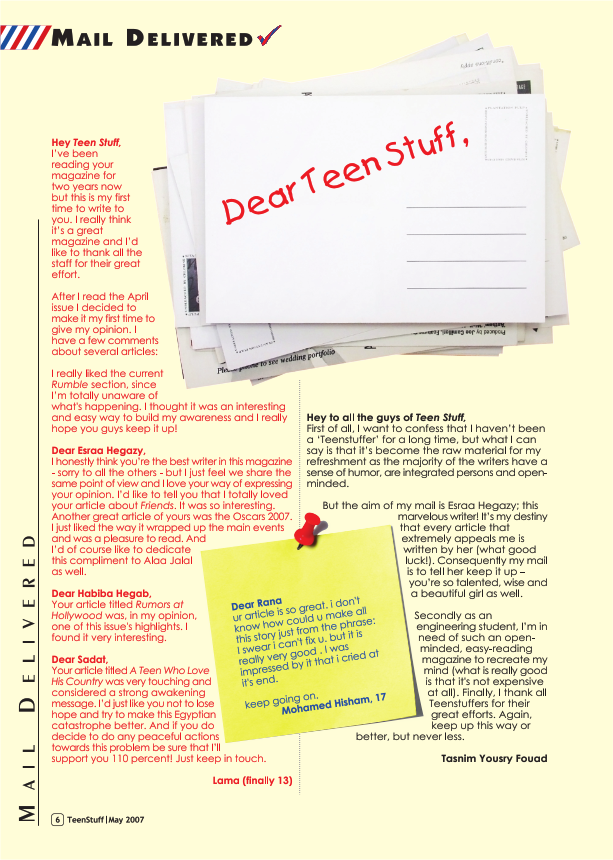 MAIL DELIVERED
Dear Teen Stuff,
Hey Teen Stuff,
I've been
reading your
magazine for
two years now
but this is my first
time to write to
you. I really think
it's a great
magazine and I'd
like to thank all the
staff for their great
effort.
After I read the April
issue I decided to
make it my first time to
give my opinion. I
have a few comments
about several articles:
I really liked the current
Rumble section, since
I'm totally unaware of
what's happening. I thought it was an interesting
and easy way to build my awareness and I really
hope you guys keep it up!
Dear Esraa Hegazy,
I honestly think you're the best writer in this magazine
- sorry to all the others - but I just feel we share the
same point of view and I love your way of expressing
your opinion. I'd like to tell you that I totally loved
your article about Friends. It was so interesting.
Another great article of yours was the Oscars 2007.
I just liked the way it wrapped up the main events
and was a pleasure to read. And
I'd of course like to dedicate
this compliment to Alaa Jalal
as well.
Dear Habiba Hegab,
Your article titled Rumors at
Hollywood was, in my opinion,
one of this issue's highlights. I
found it very interesting.
Dear Sadat,
Your article titled A Teen Who Love
His Country was very touching and
considered a strong awakening
message. I'd just like you not to lose
hope and try to make this Egyptian
catastrophe better. And if you do
decide to do any peaceful actions
towards this problem be sure that I'll
support you 110 percent! Just keep in touch.
Lama (finally 13)
Dear Rana
ur article is so great. i don't
know how could u make all
this story just from the phrase:
I swear i can't fix u. but it is
really very good . I was
impressed by it that i cried at
it's end.
keep going on,
Mohamed Hisham, 17
Hey to all the guys of Teen Stuff,
First of all, I want to confess that I haven't been
a 'Teenstuffer' for a long time, but what I can
say is that it's become the raw material for my
refreshment as the majority of the writers have a
sense of humor, are integrated persons and open-
minded.
But the aim of my mail is Esraa Hegazy; this
marvelous writer! It's my destiny
that every article that
extremely appeals me is
written by her (what good
luck!). Consequently my mail
is to tell her keep it up –
you're so talented, wise and
a beautiful girl as well.
Secondly as an
engineering student, I'm in
need of such an open-
minded, easy-reading
magazine to recreate my
mind (what is really good
is that it's not expensive
at all). Finally, I thank all
Teenstuffers for their
great efforts. Again,
keep up this way or
better, but never less.
Tasnim Yousry Fouad
MAIL DELIVERED
6 TeenStuff|May 2007
to see wedding portfolio
Produced by Joe